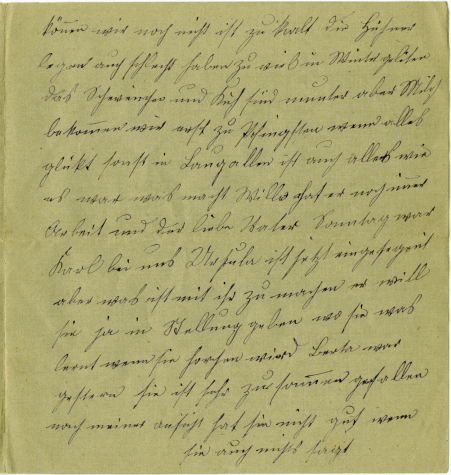 können wir noch nicht ist zu kalt die Hühner
legen auch schlecht haben zu viel in Winter gelitten
das Schweinchen und Kuh sind munter aber Milch
bekommen wir erst zu Pfingsten wenn alles
glükt sonst in Langallen ist auch alles wie
es war was macht Willi hat er noch immer
Arbeit und der liebe Vater Sonntag war
Karl bei uns Ursula ist jetzt eingesegnet
aber was ist mit ihr zu machen er will
sie ja in Stellung geben wo sie was
lernt wenn sie horchen wird Berta war
gestern sie ist sehr zusammen gefallen
nach meiner Ansicht hat sie nicht gut wenn
sie auch nichts sagt